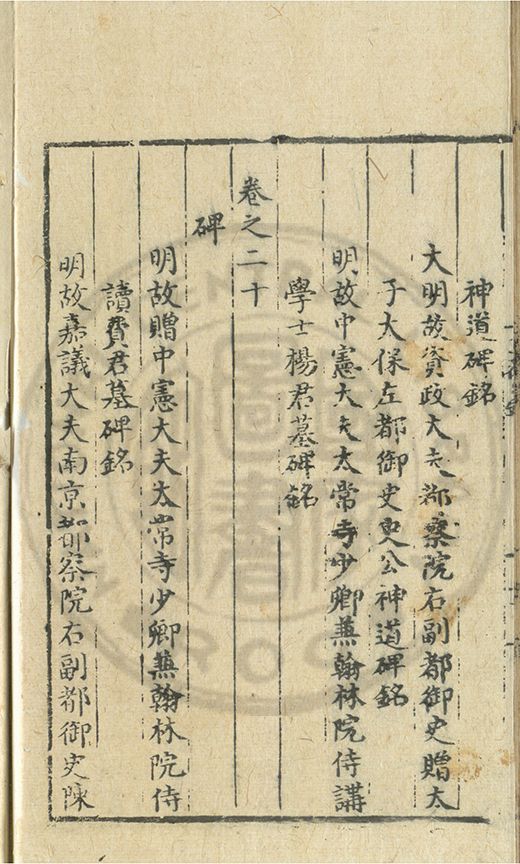 神道碑銘
大明故資政大夫都察院右副都御史贈太
子太保左都御史史公神道碑銘
明故中憲大夫太常寺少卿兼翰林院侍講
學士楊君墓碑銘
卷之二十
碑
明故贈中憲大夫太常寺少卿兼翰林院侍
讀費君墓碑銘
明故嘉議大夫南京都察院右副都御史陳